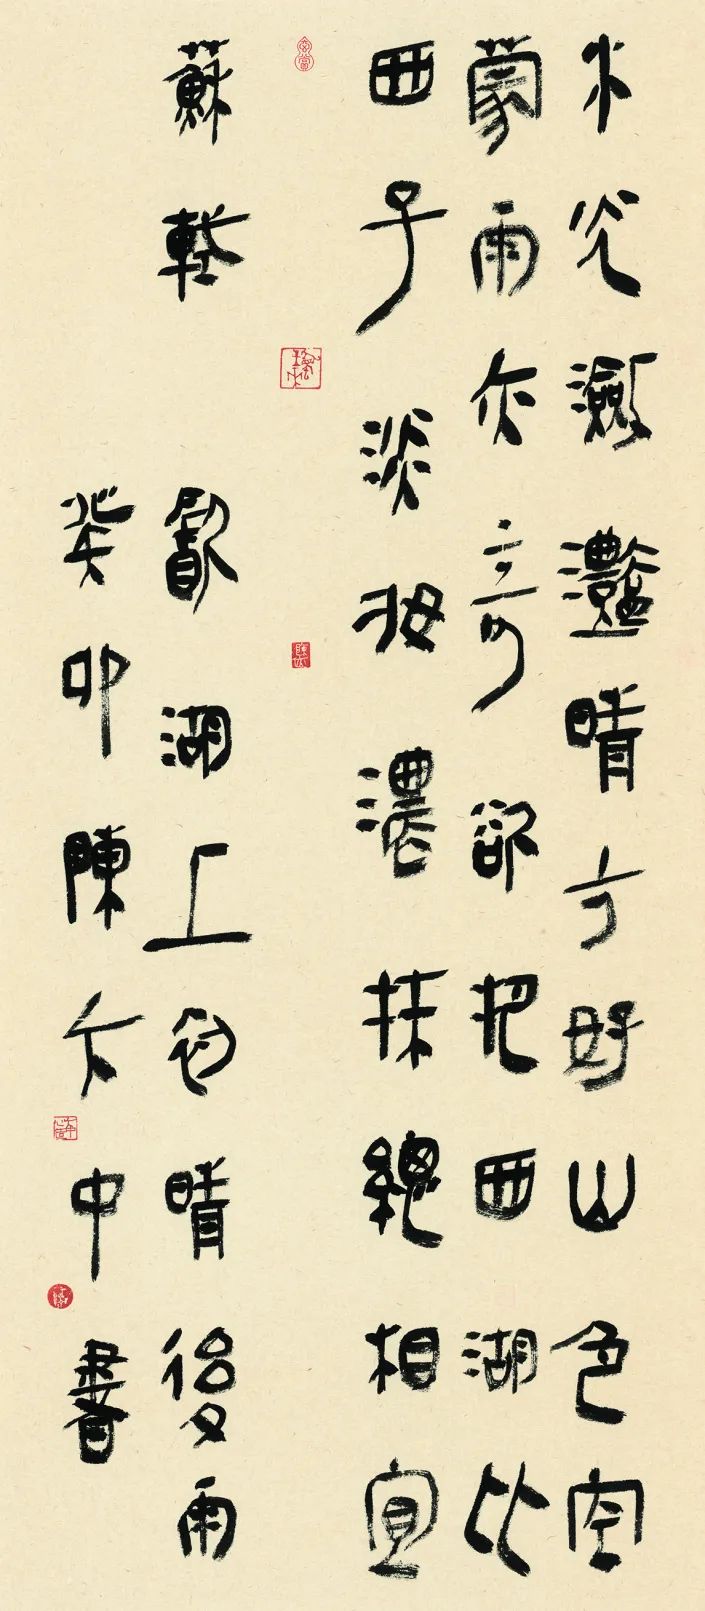 水光瀲灩晴方好山色空
蒙雨亦奇欲把西湖比
西子淡妝濃抹總相宜
蘇軾 飲湖上初晴後雨
癸卯陳大中書